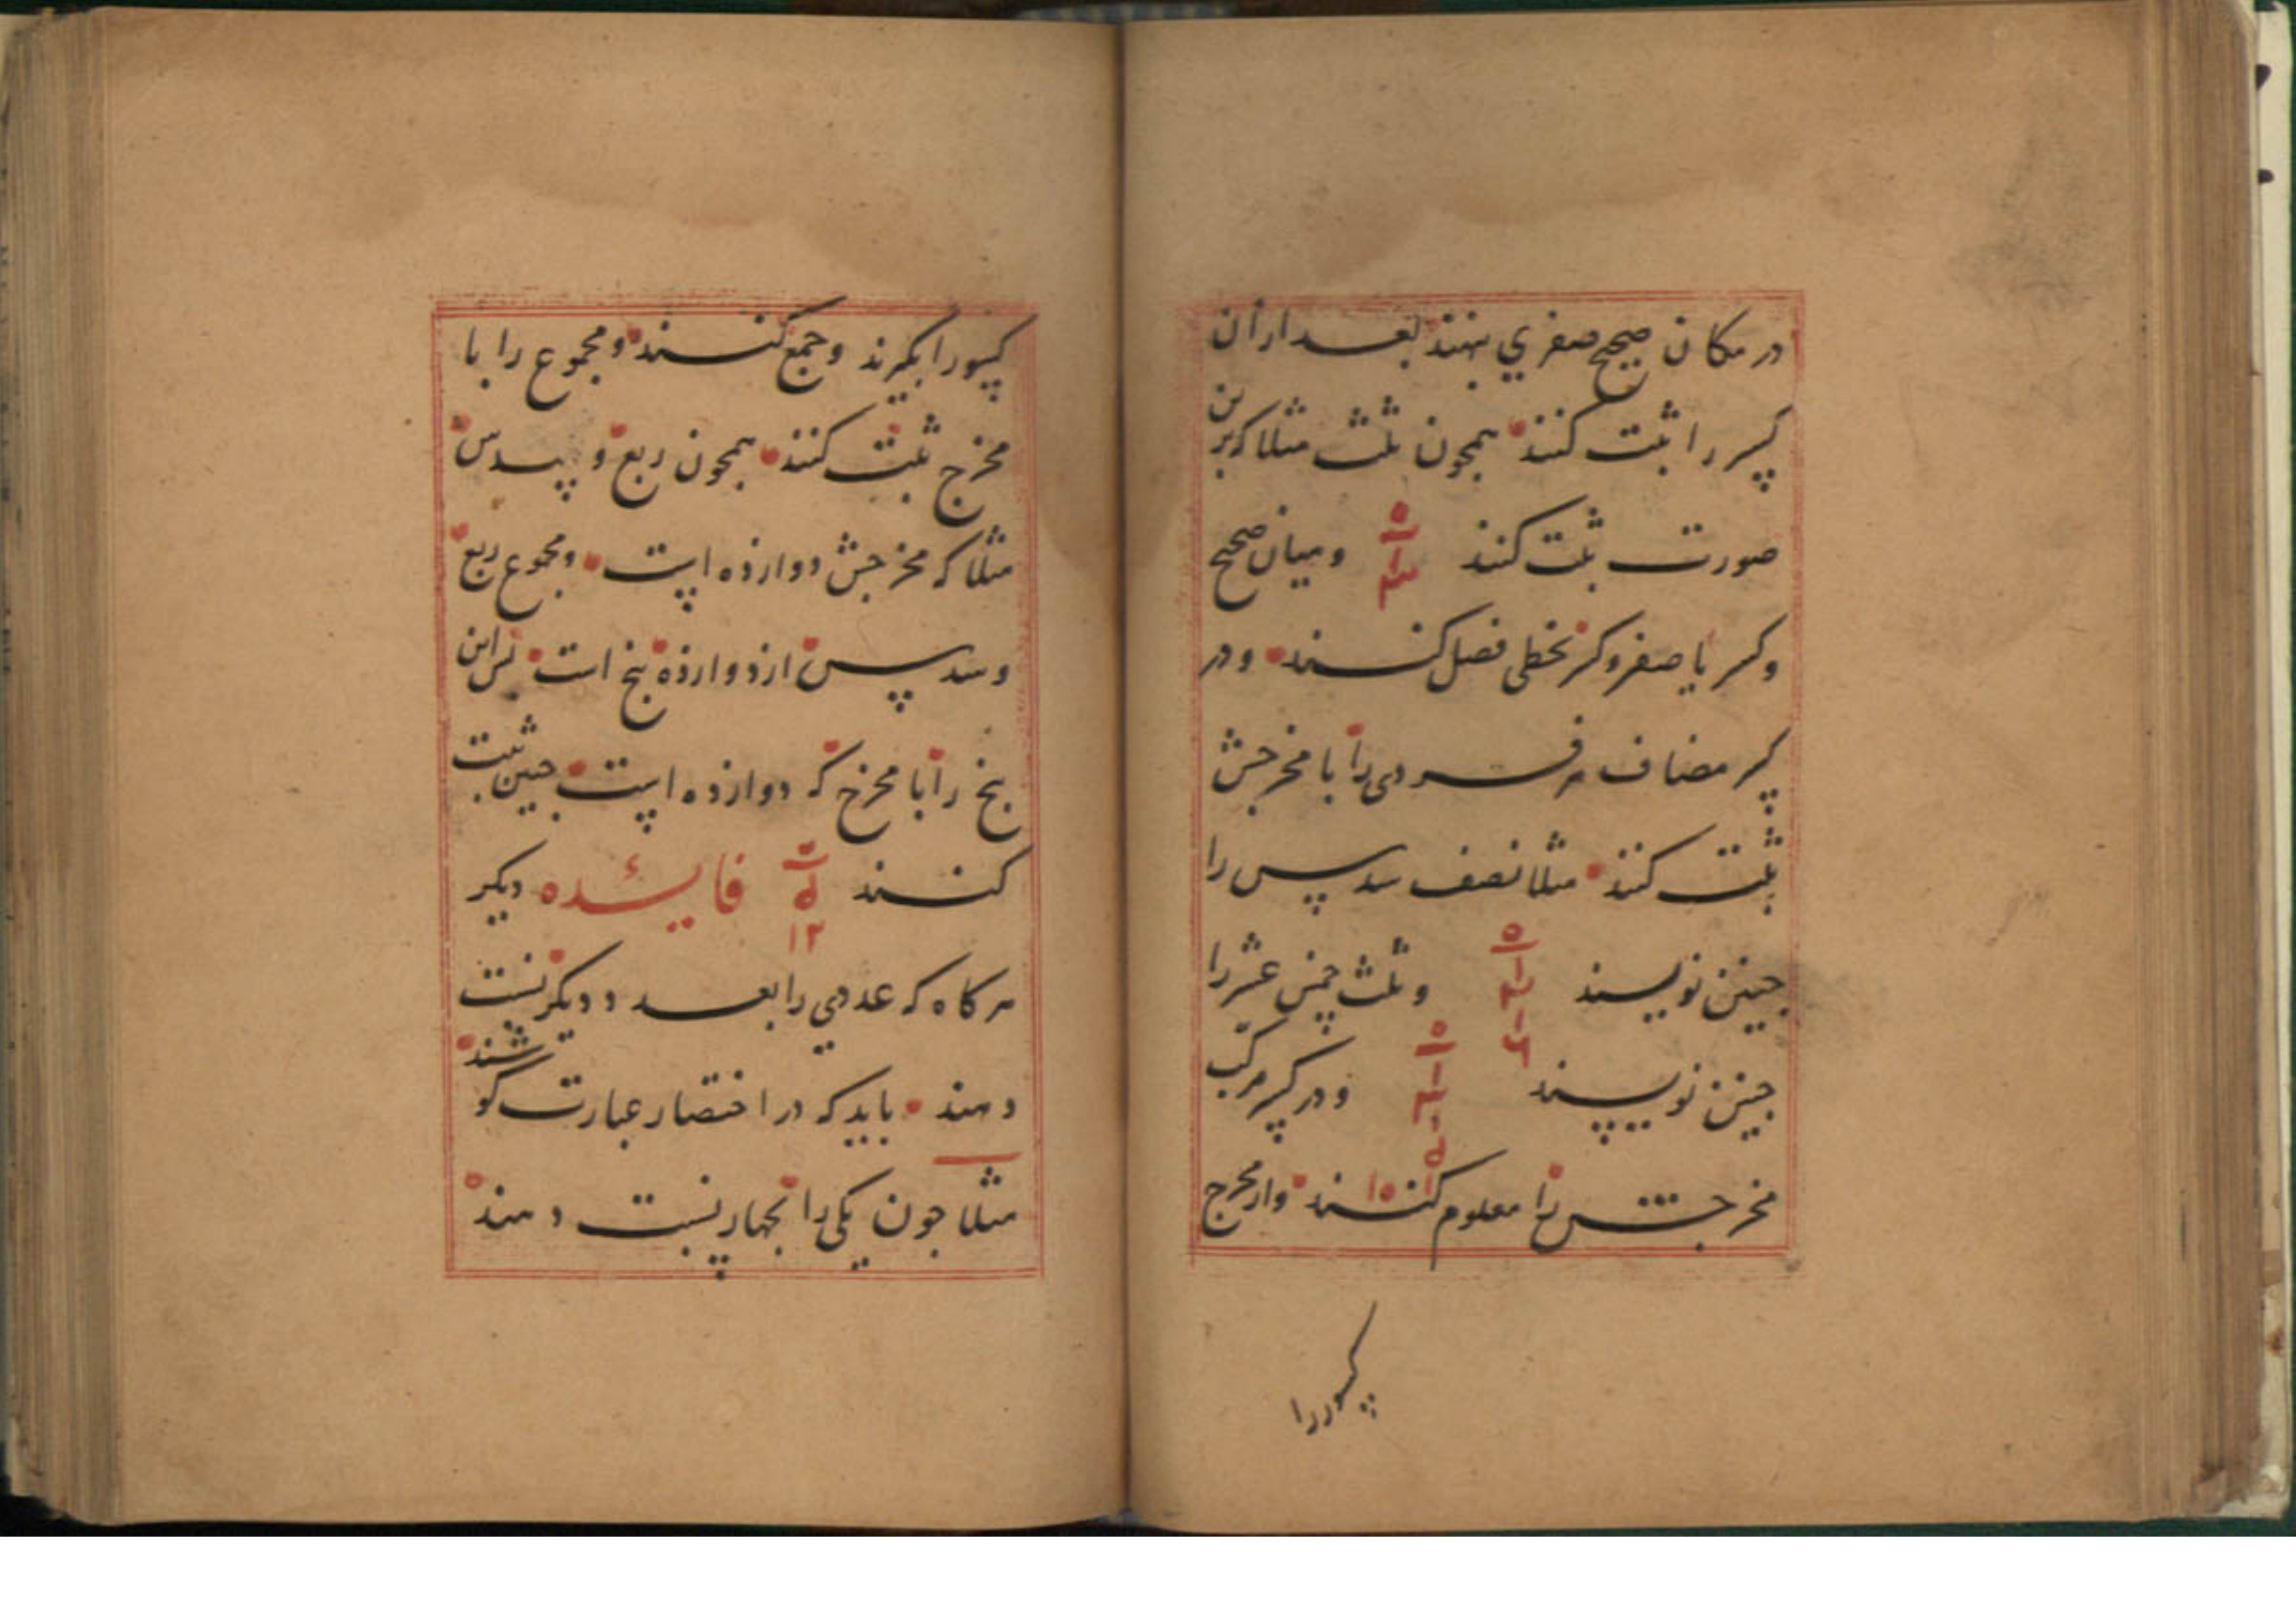 در مکان صحیح صفری بنهند بعد ازان
کسر را ثبت کنند همچون ثلث مثلا که برین
صورت ثبت کنند ۰ ۱ ۳ و میان صحیح
و کسر یا صفر و کسر بخطی فصل کنند و در
کسر مضاف هر فردی را با مخرجش
ثبت کنند مثلا نصف سدس را
چنین نویسند ۰ ۱ ۲ ۱ ۶ و ثلث خمس عشر را
چنین نویسند ۰ ۱ ۳ ۱ ۵ ۱ ۱۰ و در کسر مرکب
مخرجش را معلوم کنند و از مخرج
کسور را
کسور را بگیرند و جمع کنند و مجموع را با
مخرج ثبت کنند همچون ربع و سدس
مثلا که مخرجش دوازده است و مجموع ربع
و سدس از دوازده پنج است پس این
پنج را با مخرج که دوازده است چنین ثبت
کنند ۰ ۵ ۱۲ فایئده دیگر
هر کاه که عددی را بعدد دیکر نسبت
دهند باید که در اختصار عبارت کوشند
مثلا چون یکی را بچهار نسبت دهند